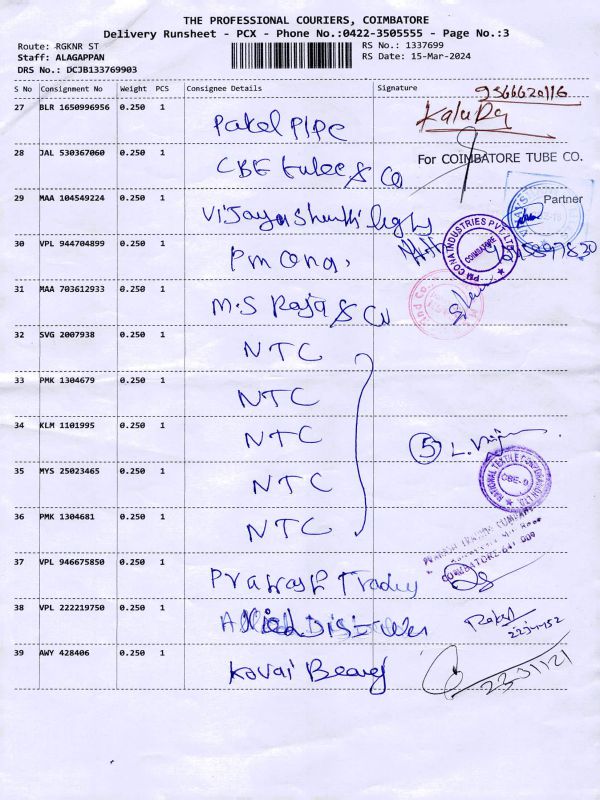 THE PROFESSIONAL COURIERS, COIMBATORE
Delivery Runsheet - PCX - Phone No.:0422-3505555 - Page No.:3
Route: RGKNR ST
RS No.: 1337699
Staff: ALAGAPPAN
RS Date: 15-Mar-2024
DRS No.: DCJB133769903
S No Consignment No Weight PCS Consignee Details Signature
27 BLR 1650996956 0.250 1 Patel PIPe
28 JAL 530367060 0.250 1 CBE tubee & Co
For COIMBATORE TUBE CO.
29 MAA 104549224 0.250 1
Partner
30 VPL 944704899 0.250 1 Pm Cona
PM CONA INDUSTRIES PVT. LTD. COIMBATORE
31 MAA 703612933 0.250 1 M.S Raja & Co
32 SVG 2007938 0.250 1 NTC
33 PMK 1304679 0.250 1 NTC
34 KLM 1101995 0.250 1 NTC
5 L.
35 MYS 25023465 0.250 1 NTC
NATIONAL TEXTILE CORPORATION LTD. CBE-9
36 PMK 1304681 0.250 1 NTC
COIMBATORE 641 009
37 VPL 946675850 0.250 1
38 VPL 222219750 0.250 1
39 AWY 428406 0.250 1 Kovai